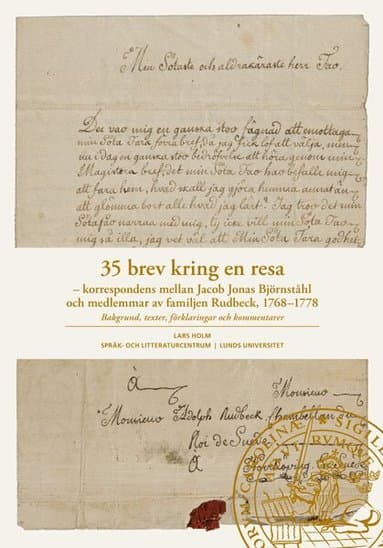 Min Sötaste och aldrakäraste herr Fao.
Det var mig en ganska stor fägnad att emottaga
min Sota Fars förra bref, då jag fick lof att välja, men
nu i dag en ganska stor bedröfvelse att höra genom min
Magisters bref, det min Söta Far har befalt mig
att fara hem, hvad skall jag gjöra hemma annat än
att glömma bort allt hvad jag lärt. Jag tror det min
Sötafar narras med mig, ty icke vill min Söta Far
mig så illa, jag vet väl att Min Söta Fars godhet
35 brev kring en resa
– korrespondens mellan Jacob Jonas Björnståhl
och medlemmar av familjen Rudbeck, 1768–1778
Bakgrund, texter, förklaringar och kommentarer
LARS HOLM
SPRÅK- OCH LITTERATURCENTRUM | LUNDS UNIVERSITET
à
Monsieur
Monsieur Adolph Rudbeck Chambellan du
Roi de Suede
à
Norrkoping
SIGILL